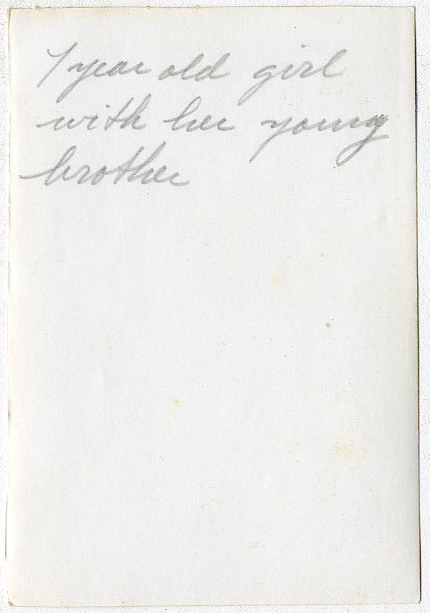 7 year old girl
with her young
brother